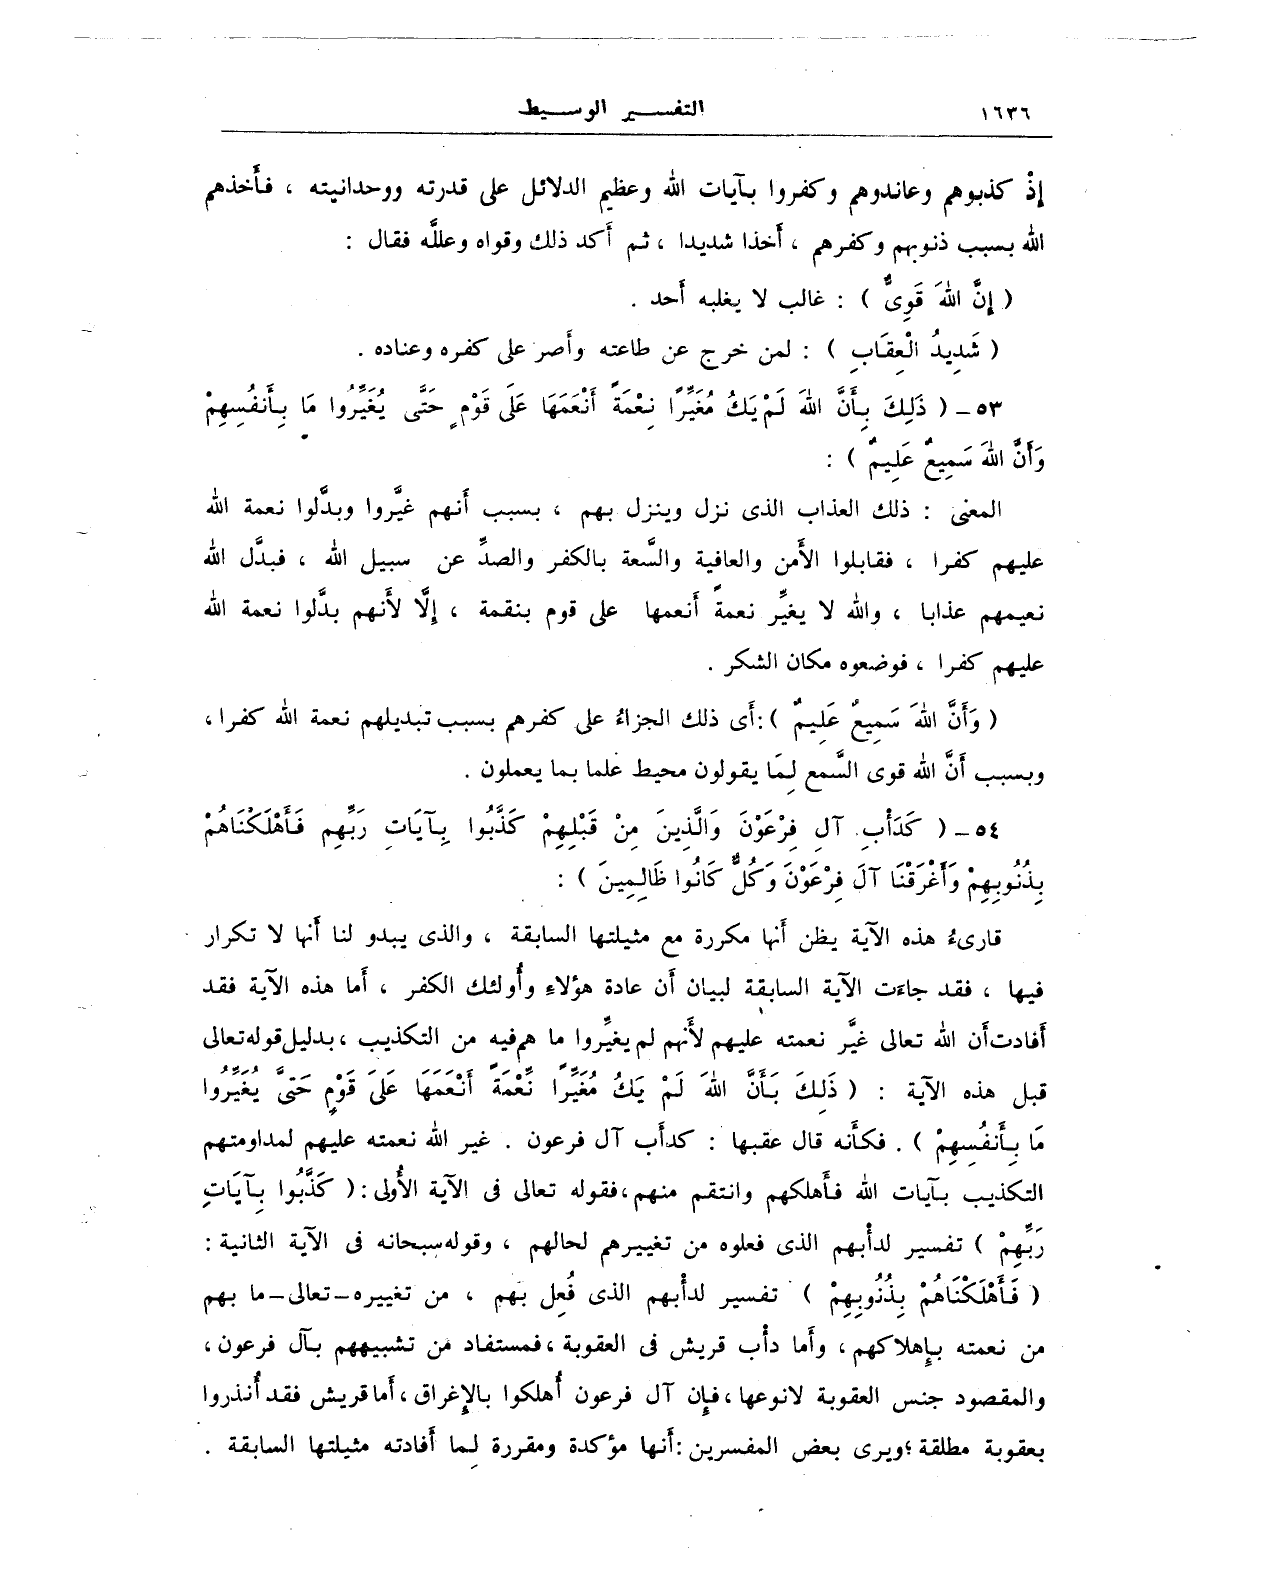 ١٦٣٦ التفسير الوسيط
إذْ كذبوهم وعاندوهم وكفروا بآيات الله وعظيم الدلائل على قدرته ووحدانيته ، فأَخذهم
الله بسبب ذنوبهم وكفرهم ، أَخذا شديدا ، ثم أَكد ذلك وقواه وعلَّله فقال :
( إِنَّ اللهَ قَوِىٌّ ) : غالب لا يغلبه أَحد .
( شَدِيدُ الْعِقَابِ ) : لمن خرج عن طاعته وأَصر على كفره وعناده .
٥٣ - ( ذَلِكَ بِأَنَّ اللهَ لَمْ يَكُ مُغَيِّرًا نِعْمَةً أَنْعَمَهَا عَلَى قَوْمٍ حَتَّى يُغَيِّرُوا مَا بِأَنفُسِهِمْ
وَأَنَّ اللهَ سَمِيعٌ عَلِيمٌ ) :
المعنى : ذلك العذاب الذى نزل وينزل بهم ، بسبب أَنهم غيَّروا وبدَّلوا نعمة الله
عليهم كفرا ، فقابلوا الأَمن والعافية والسَّعة بالكفر والصدِّ عن سبيل الله ، فبدَّل الله
نعيمهم عذابا ، والله لا يغيِّر نعمةً أَنعمها على قوم بنقمة ، إِلَّا لأَنهم بدَّلوا نعمة الله
عليهم كفرا ، فوضعوه مكان الشكر .
( وَأَنَّ اللهَ سَمِيعٌ عَلِيمٌ ) : أَى ذلك الجزاءُ على كفرهم بسبب تبديلهم نعمة الله كفرا ،
وبسبب أَنَّ الله قوى السَّمع لِمَا يقولون محيط علما بما يعملون .
٥٤ - ( كَدَأْبِ آلِ فِرْعَوْنَ وَالَّذِينَ مِنْ قَبْلِهِمْ كَذَّبُوا بِآيَاتِ رَبِّهِم فَأَهْلَكْنَاهُمْ
بِذُنُوبِهِمْ وَأَغْرَقْنَا آلَ فِرْعَوْنَ وَكُلٌّ كَانُوا ظَالِمِينَ ) :
قارىءُ هذه الآية يظن أَنها مكررة مع مثيلتها السابقة ، والذى يبدو لنا أَنها لا تكرار
فيها ، فقد جاءَت الآية السابقة لبيان أَن عادة هؤلاءِ وأُولئك الكفر ، أَما هذه الآية فقد
أَفادت أَن الله تعالى غيَّر نعمته عليهم لأَنهم لم يغيِّروا ما هم فيه من التكذيب ، بدليل قوله تعالى
قبل هذه الآية : ( ذَلِكَ بِأَنَّ اللهَ لَمْ يَكُ مُغَيِّرًا نِّعْمَةً أَنْعَمَهَا عَلَى قَوْمٍ حَتَّى يُغَيِّرُوا
مَا بِأَنفُسِهِمْ ) . فكأَنه قال عقبها : كدأْب آل فرعون . غير الله نعمته عليهم لمداومتهم
التكذيب بآيات الله فأَهلكهم وانتقم منهم ، فقوله تعالى فى الآية الأُولى : ( كَذَّبُوا بِآيَاتِ
رَبِّهِمْ ) تفسير لدأْبهم الذى فعلوه من تغييرهم لحالهم ، وقوله سبحانه فى الآية الثانية :
( فَأَهْلَكْنَاهُمْ بِذُنُوبِهِمْ ) تفسير لدأْبهم الذى فُعِل بهم ، من تغييره - تعالى - ما بهم
من نعمته بإِهلاكهم ، وأَما دأْب قريش فى العقوبة ، فمستفاد من تشبيههم بآل فرعون ،
والمقصود جنس العقوبة لا نوعها ، فإِن آل فرعون أُهلكوا بالإِغراق ، أَما قريش فقد أُنذروا
بعقوبة مطلقة ؛ ويرى بعض المفسرين : أَنها مؤكدة ومقررة لِما أَفادته مثيلتها السابقة .